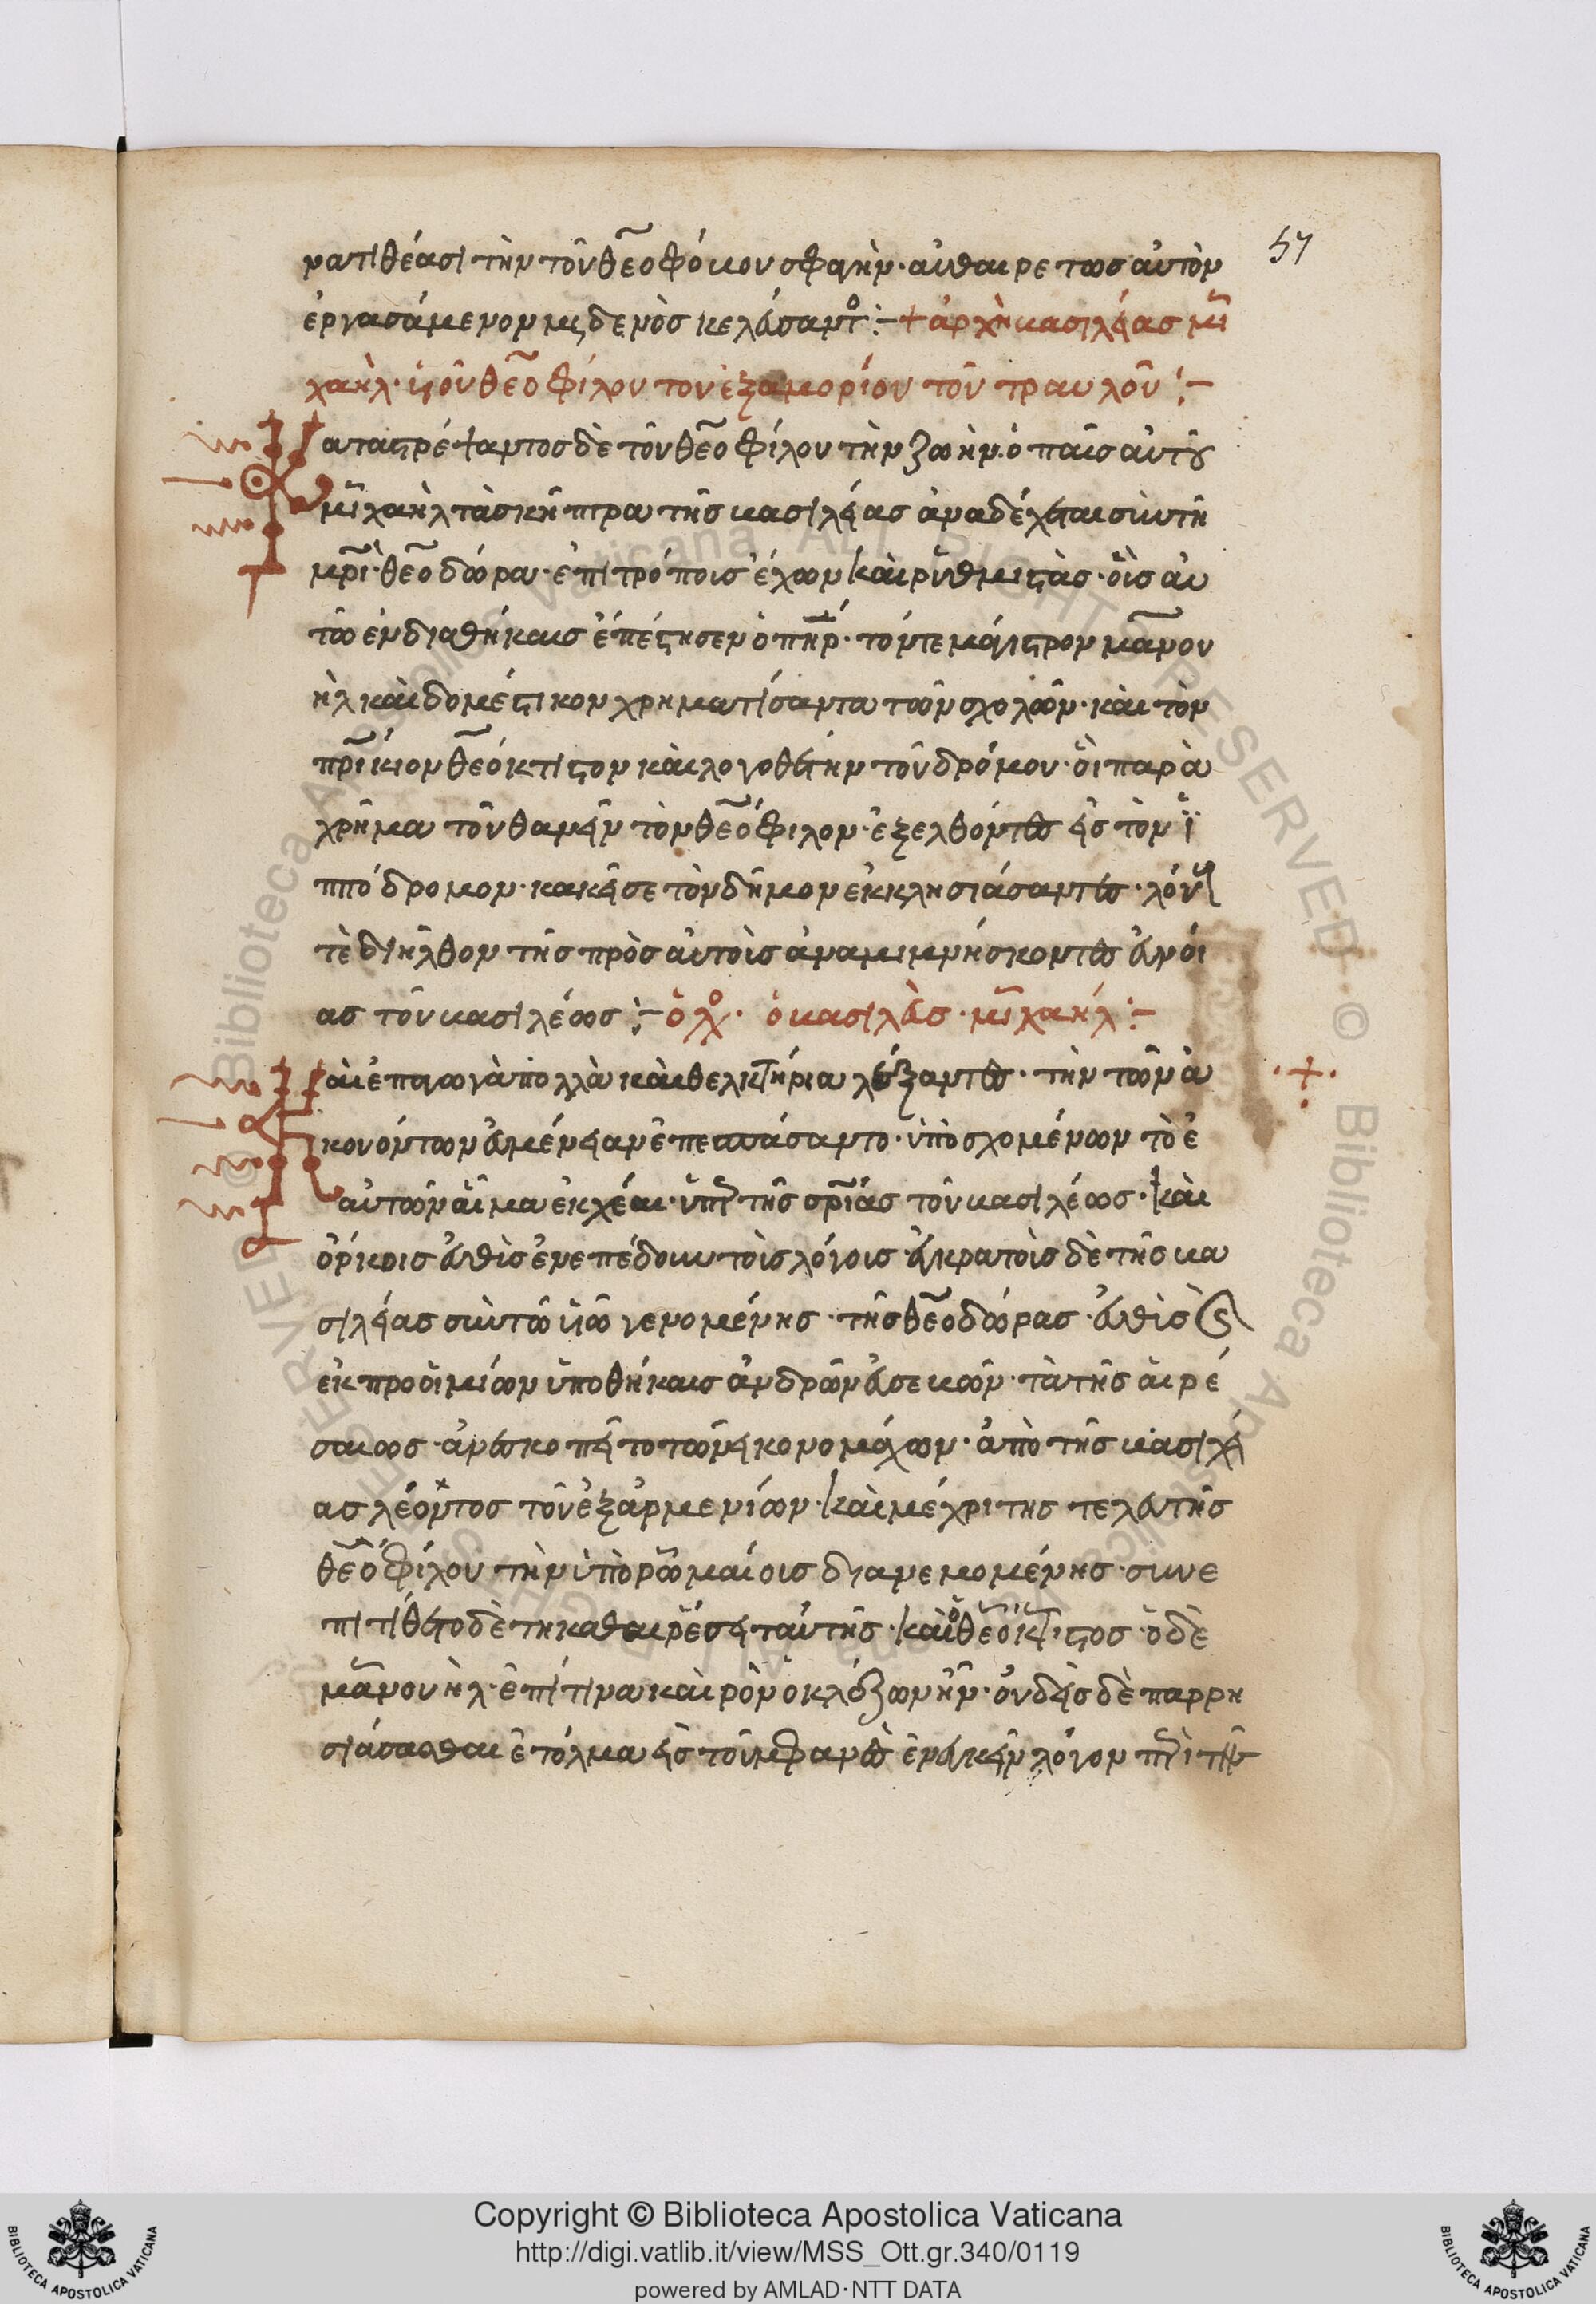 57
νατιθέασι τὴν τοῦ θεοφόβου σφαγὴν· αὐθαιρέτως αὐτὸν
ἐργασάμενον μηδενὸς κελεύσαντο :- + ἀρχὴ βασιλείας μι
χαὴλ· υἱοῦ θεοφίλου του ἐξαμορίου τοῦ τραυλοῦ :-
Καταστρέψαντος δὲ τοῦ θεοφίλου τὴν ζωὴν. ὁ παῖς αὐτοῦ
μιχαὴλ τὰ σκῆπτρα τῆς βασιλείας ἀναδέχεται σὺν τῆ
μρὶ· θεοδώρα· ἐπιτρόποις ἔχων καὶ ρυθμιστὰς· οἷς αυ
τῶ ἐν διαθήκαις ἐπέστησεν ὁ πηρ· τόν τε μάγιστρον μανου
ὴλ καὶ δομέστικον χρηματίσαντα τῶν σχολῶν· καὶ τὸν
πρίκιον θεόκτιστον καὶ λογοθέτην τοῦ δρόμου· οἳ παρὰ
χρῆμα τοῦ θανεῖν τὸν θεόφιλον· ἐξελθόντες εἰς τὸν ἱ
ππόδρομον· κακεῖσε τὸν δῆμον ἐκκλησιάσαντες· λόγους
τὲ διῆλθον τῆς πρὸς αὐτοὶς ἀναμιμνήσκοντες εὐνοί
ας τοῦ βασιλέως :- ὁλχ· ὁ βασιλεὺς· μιχαήλ :-
Καὶ ἐπαγωγὰ πολλὰ καὶ θελκτήρια λέξαντες· τὴν τῶν ἀ
κουόντων εὐμένειαν ἐπεσπάσαντο· ὑποσχομένων τὸ ἑ
αυτῶν αἷμα ἐκχέαι· ὑπὲρ τῆς σρίας τοῦ βασιλέως· καὶ
ὁρκοις εὐθὶς ἐνεπέδουν τοὶς λόγοις· ἐγκρατοὶς δὲ τῆς βα
σιλείας σὺν τῶ υἱῶ γενομένης· τῆς θεοδώρας· εὐθὶς
ἐκ προοιμίων ὑποθήκαις ἀνδρῶν εὐσεβῶν· τὰ τῆς αἱρέ
σαιως· ἀνεσκοπεῖτο τῶν εἰκονομάχων· ἀπὸ τῆς βασιλεί
ας λέοντος τοῦ ἐξ ἀρμενίων· καὶ μέχρι της τελευτῆς
θεοφίλου τὴν ὑπὸ ρωμαίοις διανεμομένης· συνε
πιτίθετο δὲ τη καθαιρέσει ταύτης· καὶ ὁ θεόκτιστος· ὁ δὲ
μανουὴλ· ἐπίτινα καιρὸν ὀκλάζων ἦν· οὐδεὶς δὲ παρρη
σιάσασθαι ἐτόλμα εἰς τοὐμφανὲς ἐνεγκεῖν λόγον περὶ τῆς